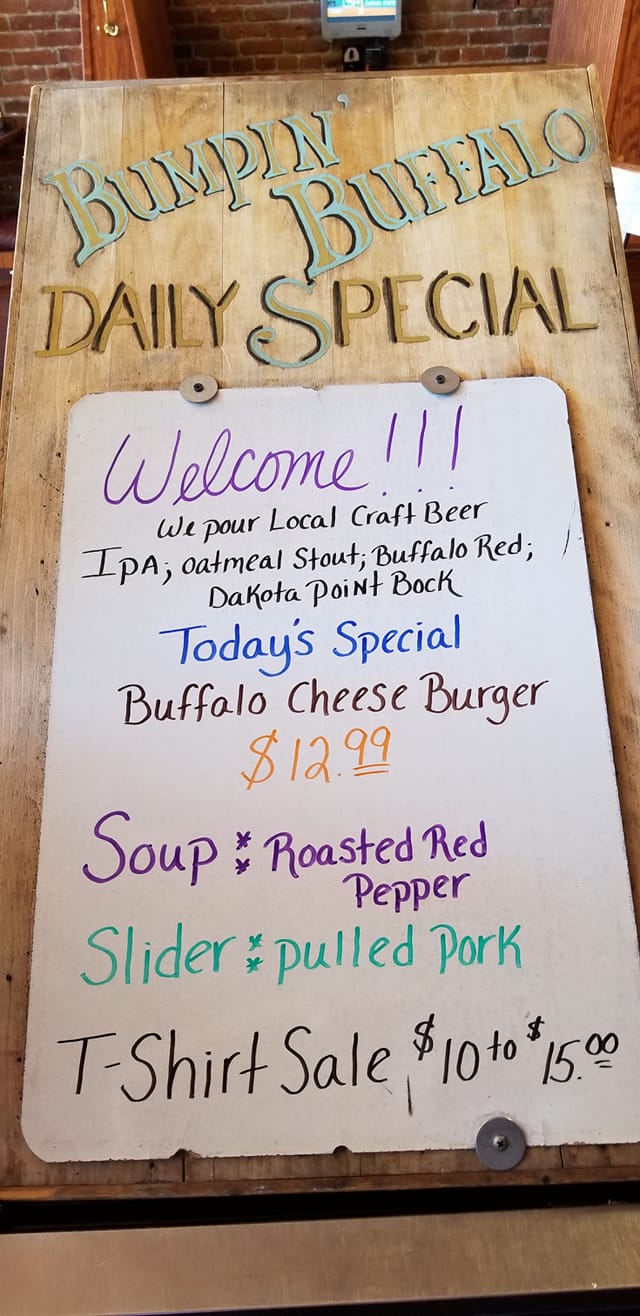 BUMPIN'
BUFFALO
DAILY SPECIAL
Welcome!!!
We pour Local Craft Beer
IPA; oatmeal Stout; Buffalo Red;
Dakota Point Bock
Today's Special
Buffalo Cheese Burger
$12.99
Soup: Roasted Red
Pepper
Slider: pulled Pork
T-Shirt Sale $10 to $15.00